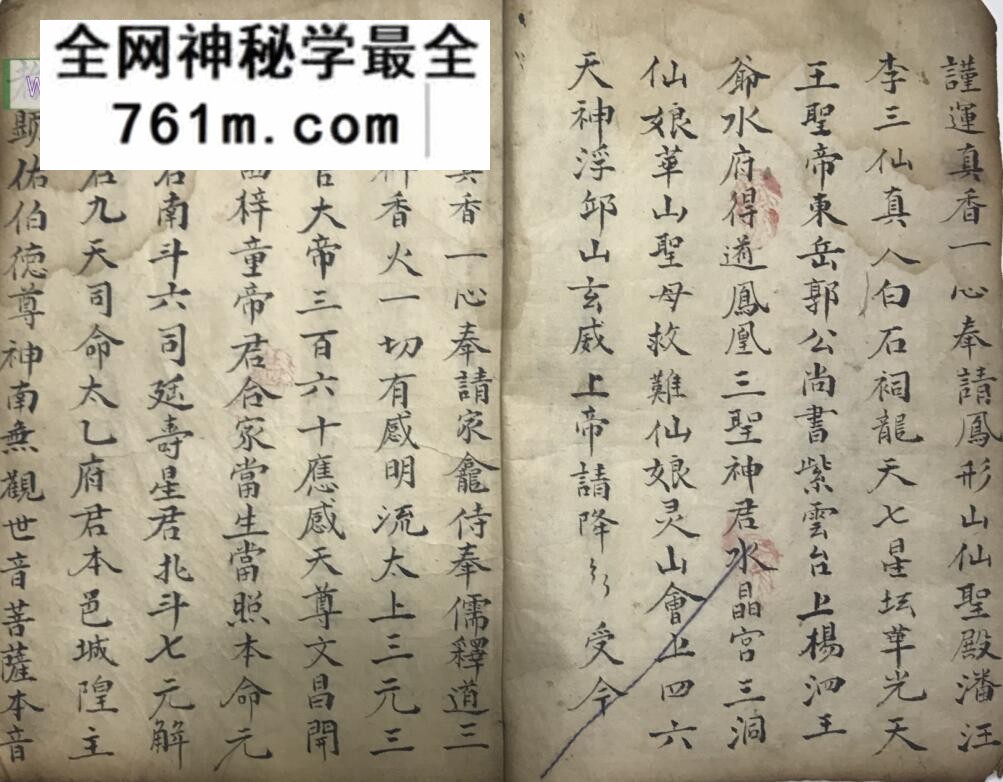 全网神秘学最全
761m.com
謹運真香一心奉請鳳形山仙聖殿潘汪
李三仙真人白石祠龍天七星坛華光天
王聖帝東岳郭公尚書紫雲台上楊泗王
爺水府得道鳳凰三聖神君水晶宮三洞
仙娘華山聖母救難仙娘灵山會上四六
天神浮邱山玄威上帝請降 受今
真香一心奉請家龕侍奉儒釋道三
香火一切有感明流太上三元三
大帝三百六十應感天尊文昌開
梓童帝君合家當生當照本命元
南斗六司延壽星君北斗七元解
君九天司命太乙府君本邑城隍主
顯佑伯德尊神南無觀世音菩薩本音